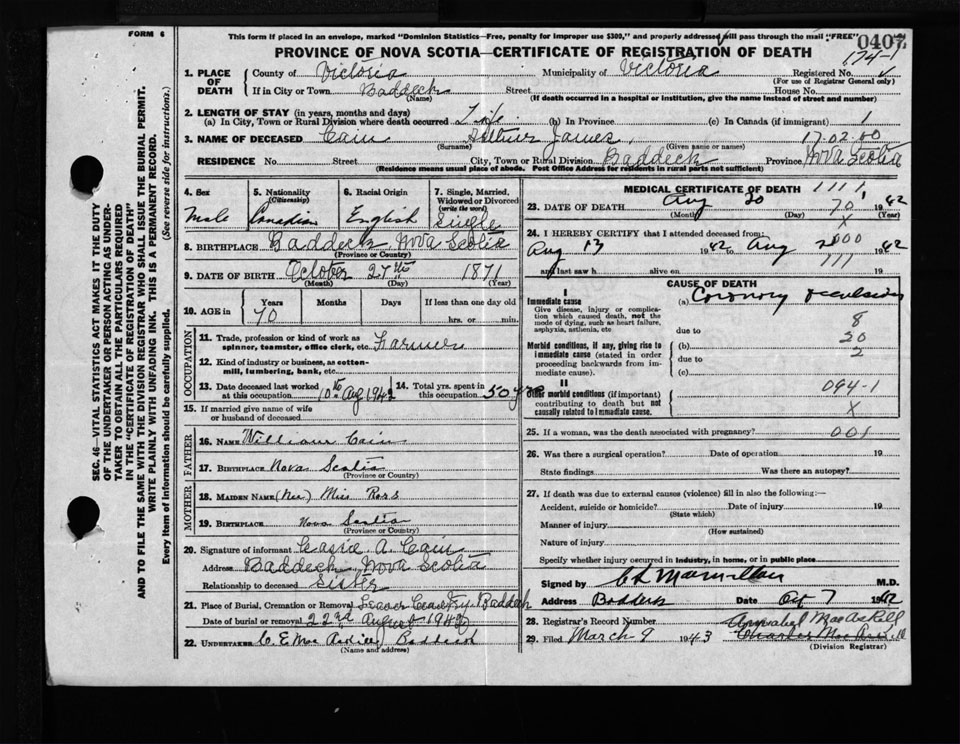 FORM 6
This form if placed in an envelope, marked "Dominion Statistics—Free, penalty for improper use $300," and properly addressed will pass through the mail "FREE"
0407
PROVINCE OF NOVA SCOTIA—CERTIFICATE OF REGISTRATION OF DEATH
174-1
1. PLACE OF DEATH
County of Victoria Municipality of Victoria Registered No.
(For use of Registrar General only)
If in City or Town Baddeck Street House No.
(Name) (If death occurred in a hospital or institution, give the name instead of street and number)
2. LENGTH OF STAY (in years, months and days)
(a) In City, Town or Rural Division where death occurred Life (b) In Province (c) In Canada (if immigrant) 1
3. NAME OF DECEASED Cain Arthur James, 17-02.00
(Surname) (Given name or names)
RESIDENCE No. Street City, Town or Rural Division Baddeck Province Nova Scotia
(Residence means usual place of abode. Post Office Address for residents in rural parts not sufficient)
SEC. 46—VITAL STATISTICS ACT MAKES IT THE DUTY
OF THE UNDERTAKER OR PERSON ACTING AS UNDER-
TAKER TO OBTAIN ALL THE PARTICULARS REQUIRED
IN THE "CERTIFICATE OF REGISTRATION OF DEATH"
AND TO FILE THE SAME WITH THE DIVISION REGISTRAR WHO SHALL ISSUE THE BURIAL PERMIT.
WRITE PLAINLY WITH UNFADING INK. THIS IS A PERMANENT RECORD.
Every item of Information should be carefully supplied. (See reverse side for instructions.)
4. Sex
Male
5. Nationality
(Citizenship)
Canadian
6. Racial Origin
English
7. Single, Married, Widowed or Divorced
(write the word)
Single
8. BIRTHPLACE Baddeck, Nova Scotia
(Province or Country)
9. DATE OF BIRTH October 27th 1871
(Month) (Day) (Year)
10. AGE in Years Months Days If less than one day old
70 hrs. or min.
OCCUPATION
11. Trade, profession or kind of work as Farmer
spinner, teamster, office clerk, etc.
12. Kind of industry or business, as cotton-
mill, lumbering, bank, etc.
13. Date deceased last worked at this occupation 10th Aug 1942
14. Total yrs. spent in this occupation 50 yrs
15. If married give name of wife
or husband of deceased
FATHER
16. NAME William Cain
17. BIRTHPLACE Nova Scotia
(Province or Country)
MOTHER
18. MAIDEN NAME (Nee) Miss Ross
19. BIRTHPLACE Nova Scotia
(Province or Country)
20. Signature of informant A. Cain
Address Baddeck, Nova Scotia
Relationship to deceased Sister
21. Place of Burial, Cremation or Removal Baddeck
Date of burial or removal 22nd August 1942
22. UNDERTAKER Baddeck
(Name and address)
MEDICAL CERTIFICATE OF DEATH 1111
23. DATE OF DEATH Aug 20 70 1942
(Month) (Day) (Year)
X
24. I HEREBY CERTIFY that I attended deceased from:
Aug 13 1942 to Aug 1942
and last saw h alive on 111 19
CAUSE OF DEATH
I
Immediate cause
Give disease, injury or complica-
tion which caused death, not the
mode of dying, such as heart failure,
asphyxia, asthenia, etc
(a) Coronary occlusion
due to 8
Morbid conditions, if any, giving rise to
immediate cause (stated in order
proceeding backwards from im-
mediate cause).
(b) 20
due to 2
(c)
II
Other morbid conditions (if important)
contributing to death but not
causally related to immediate cause.
094-1
X
25. If a woman, was the death associated with pregnancy? 001
26. Was there a surgical operation? Date of operation 19
State findings Was there an autopsy?
27. If death was due to external causes (violence) fill in also the following:—
Accident, suicide or homicide? Date of injury 19
(State which)
Manner of injury
(How sustained)
Nature of injury
Specify whether injury occurred in industry, in home, or in public place
Signed by Macmillan M.D.
Address Baddeck Date 7 1942
28. Registrar's Record Number Annabel MacAskill
29. Filed March 9 1943 Charles
(Division Registrar)